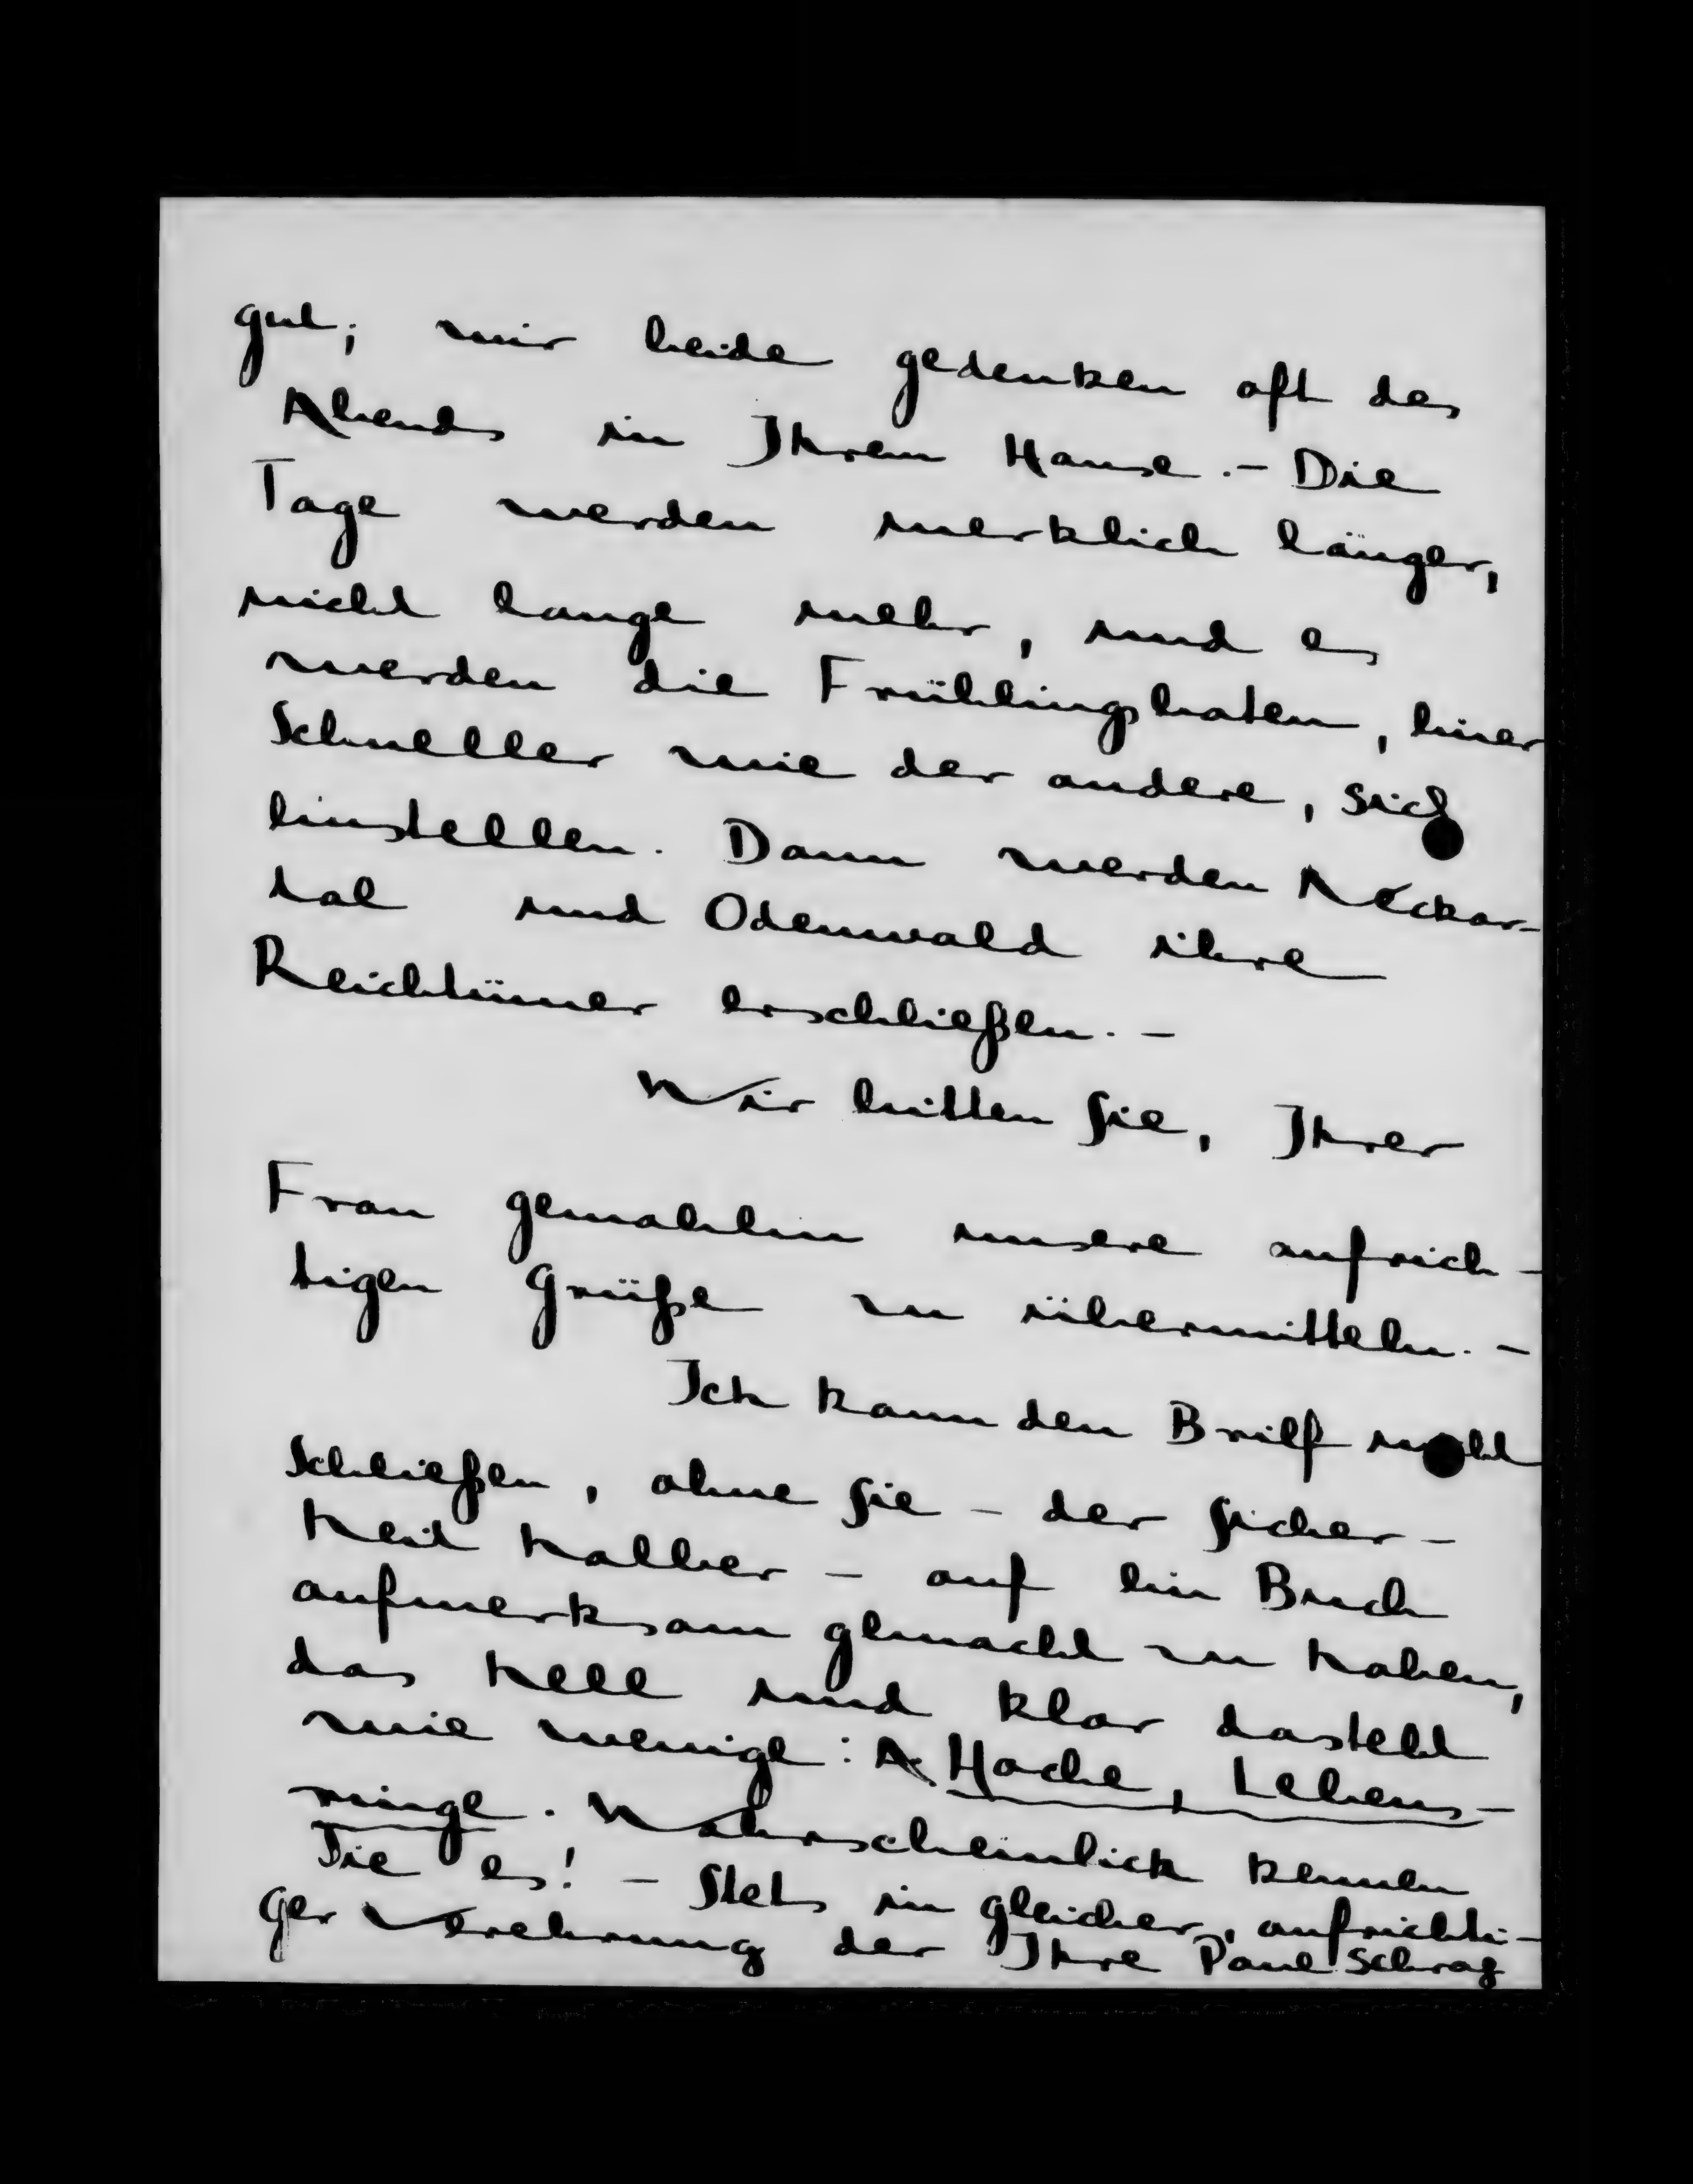 gut; wir beide gedenken oft des
Abends in Ihrem Hause. – Die
Tage werden merklich länger,
nicht lange mehr, und es
werden die Frühlingsboten, einer
schneller wie der andere, sich
einstellen. Dann werden Neckar-
tal und Odenwald ihre
Reichtümer erschließen. –
Wir bitten Sie, Ihrer
Frau Gemahlin unsere aufrich-
tigen Grüße zu übermitteln. –
Ich kann den Brief nicht
schließen, ohne Sie – der Sicher-
heit halber – auf ein Buch
aufmerksam gemacht zu haben,
das hell und klar dasteht
wie wenige: A. Hoche, Lebens-
ringe. Wahrscheinlich kennen
Sie es! – Stets in gleicher, aufrichti-
ger Verehrung der Ihre Paul Schrag